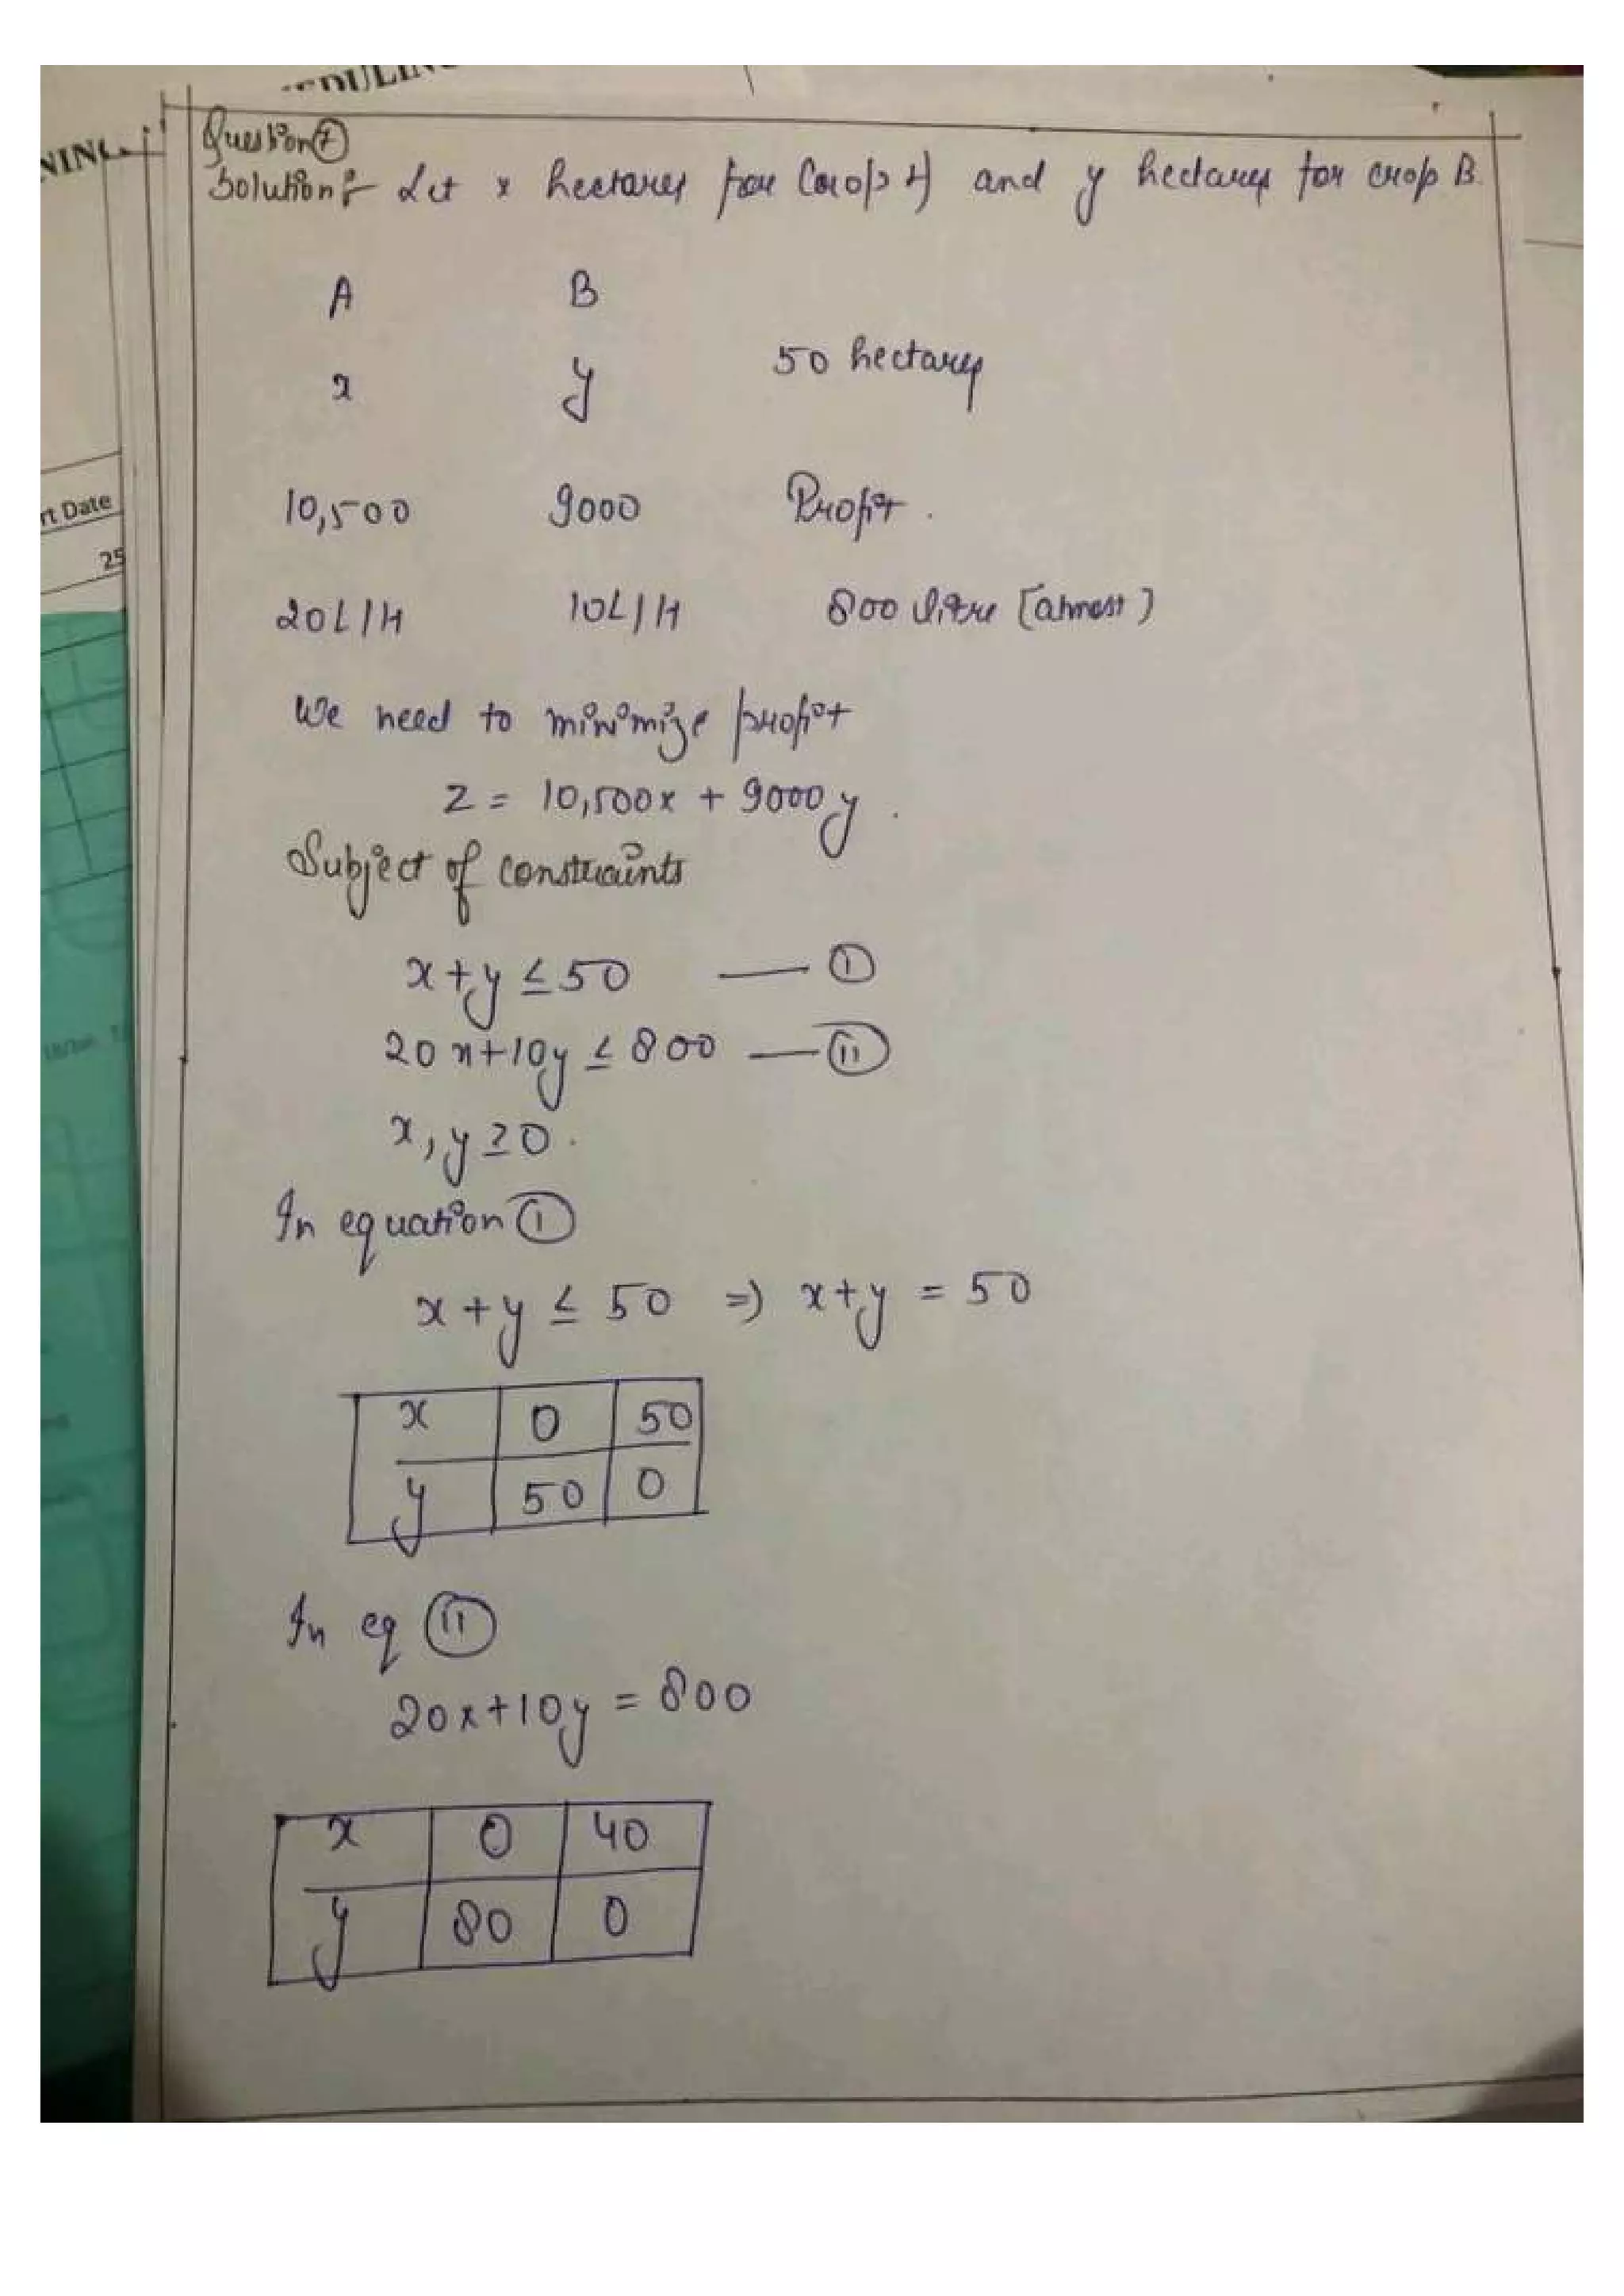 EDULING
NING
Question 7
Solution :- Let x hectares for Crop A and y hectares for crop B.
A B
x y 50 hectares
10,500 9000 Profit.
rt Date
25
20L/H 10L/H 800 litre [atmost]
We need to minimize profit
Z = 10,500x + 9000y.
Subject of constraints
x+y ≤ 50 — I
20x+10y ≤ 800 — II
x, y ≥ 0.
In equation I
x + y ≤ 50 => x+y = 50
x 0 50
y 50 0
In eq II
20x+10y = 800
x 0 40
y 80 0